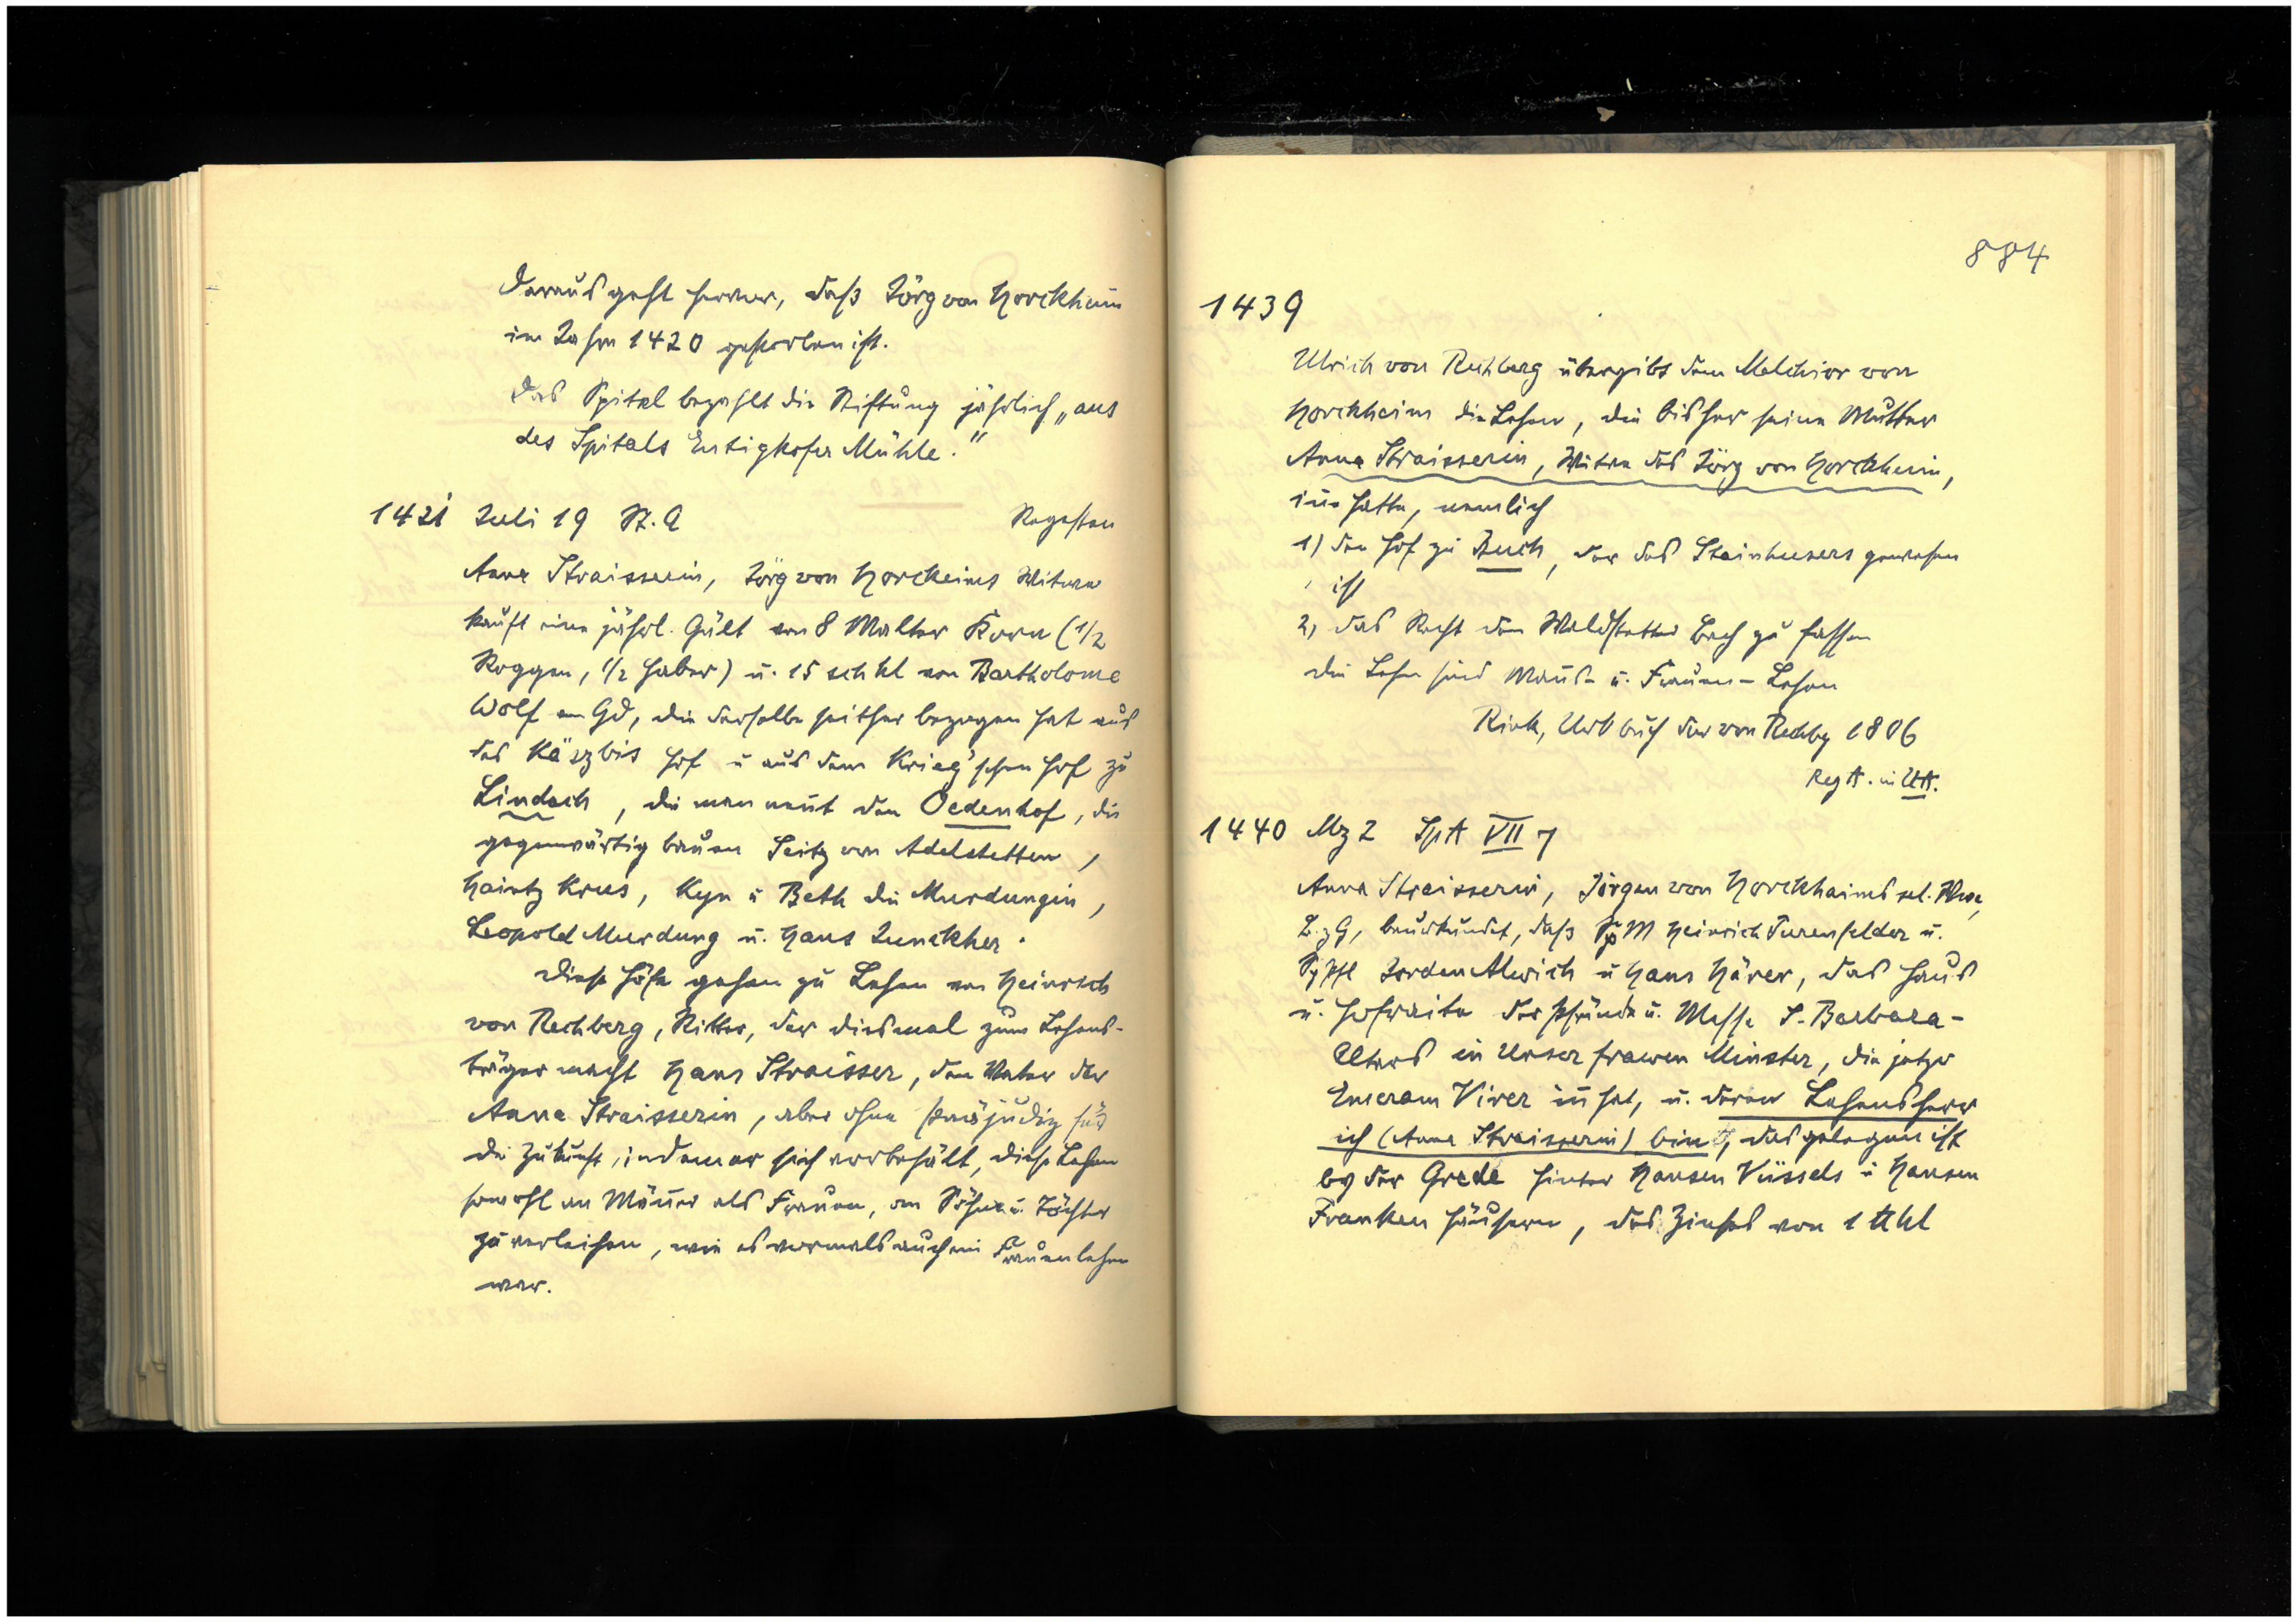 Daraus geht hervor, daß Jörg von Horckheim
im Jahre 1420 gestorben ist.
Das Spital bezahlt die Stiftung jährlich „aus
des Spitals Eutigkofer Mühle."
1421 Juli 19 St. A Regesten
Anna Straisserin, Jörg von Horckeims Witwe
kauft eine jährl. Gült von 8 Malter Korn (1/2
Roggen, 1/2 Haber) u. 15 sch hl von Bartholome
Wolf von Gd, die derselbe seither bezogen hat aus
des Käszbis Hof u aus dem Krieg'schen Hof zu
Lindach, die man nent den Oedenhof, die
gegenwärtig bauen Seitz von Adelstetten,
Haintz Krus, Kyn u Beth die Murdungin,
Leopold Murdung u. Hans Junckher.
Diese Höfe gehen zu Lehen von Heinrich
von Rechberg, Ritter, der diesmal zum Lehens-
träger macht Hans Straisser, den Vater der
Anna Straisserin, aber ohne Präjudiz für
die Zukunft, indem er sich vorbehält, diese Lehen
sowohl an Männer als Frauen, an Söhne u. Töchter
zu verleihen, wie es vormals auch ein Frauenlehen
war.
884
1439
Ulrich von Rechberg übergibt dem Melchior von
Horckheim die Lehen, die bisher seine Mutter
Anna Straisserin, Witwe des Jörg von Horckheim,
inne hatte, nemlich
1) den Hof zu Buch, der des Steinhusers gewesen
ist
2) das Recht den Waldstetter Bach zu fassen
die Lehen sind Mans- u. Frauen-Lehen
Rink, Urkbuch der von Rechbg 1806
Reg A. in UA.
1440 Mz 2 SpA VII 7
Anna Straisserin, Jörgen von Horckhaims sel. Wwe,
B. z G, beurkundet, daß SpM Heinrich Turenfelder u.
SpPfl Jorden Alwich u Hans Härer, das Haus
u. Hofraite der Pfründe u. Messe S. Barbara-
Altars in Unser frawen Minster, die jetzo
Emeram Virer inhat, u. deren Lehensherr
ich (Anna Straisserin) bin, das gelegen ist
by der Grede hinter Hansen Vüssels u Hansen
Franken Häusern, des Zinses von 1 ℔ hl